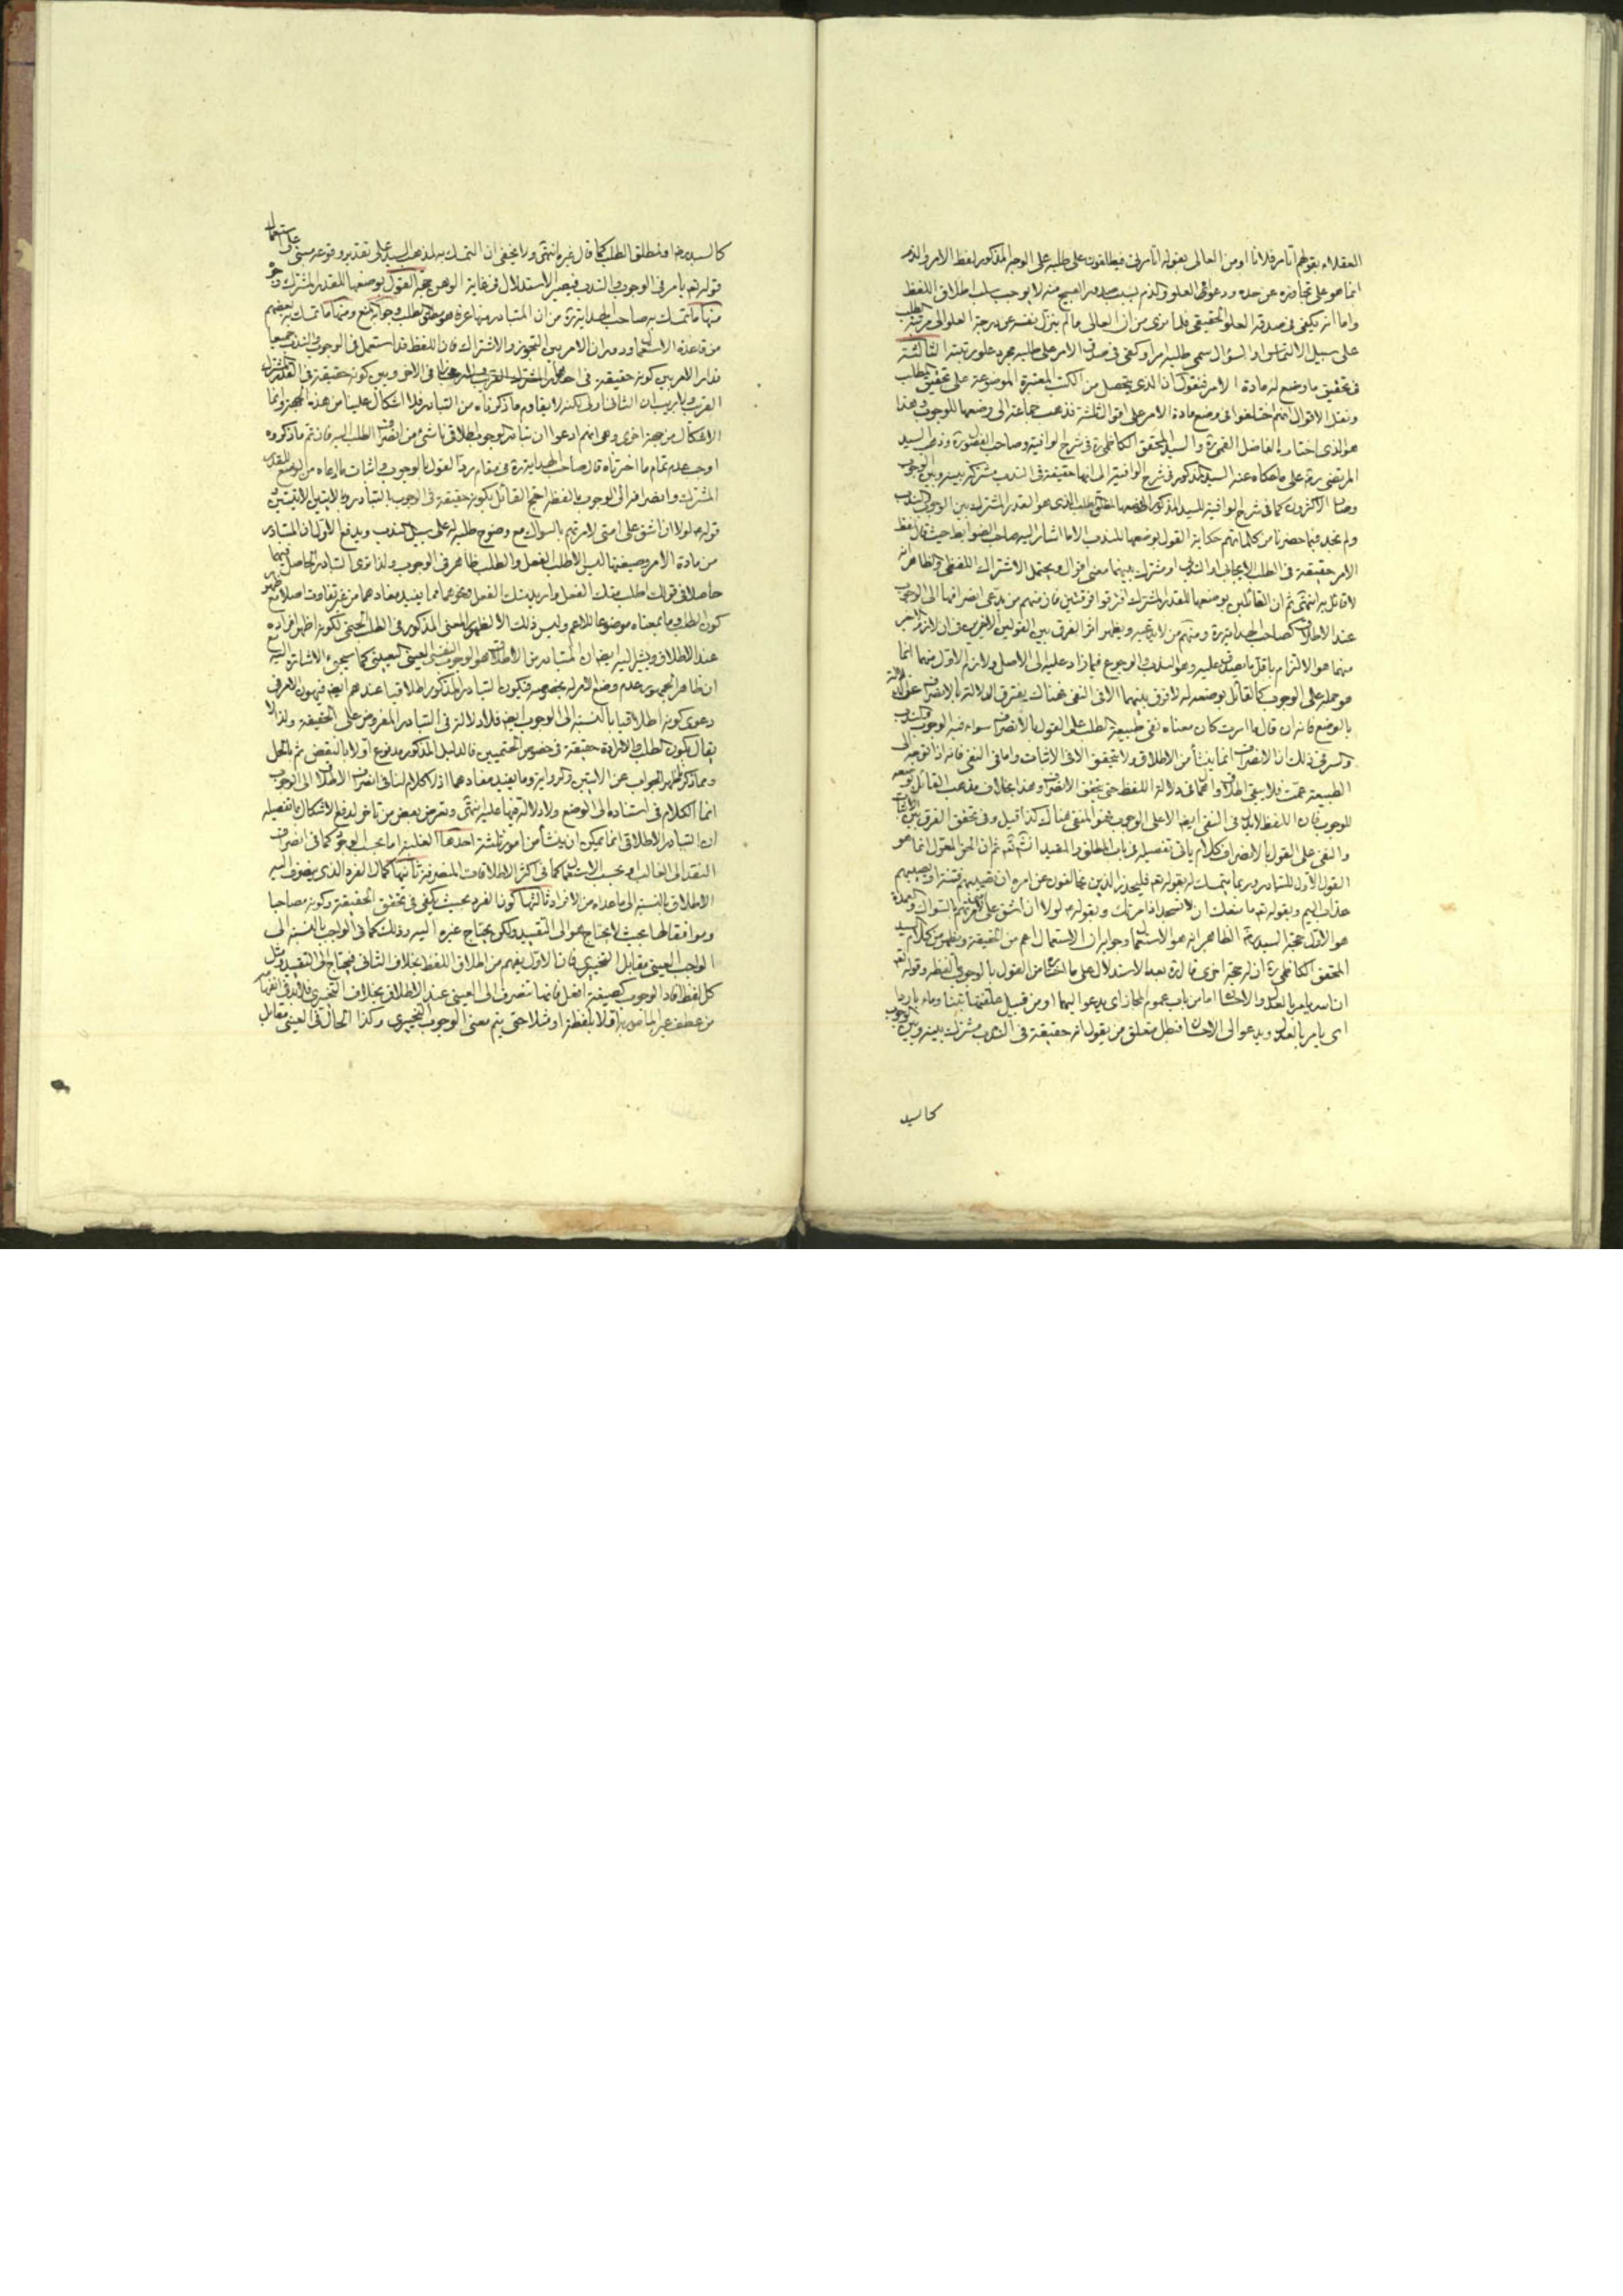 العقلاء بقولهم اتامر فلانا او من العالى بقوله اتامرنى فيطلقون على طلبه على الوجه المذكور لفظ الامر والذم
انما هو على تجاوزه عن حده ودعواه العلو والذم بسبب صدور القبيح منه لا يوجب سلب اطلاق اللفظ
واما انه يكفى فى صدقه العلو الحقيقى فلما نرى من ان العالى ما لم ينزل نفسه عن درجة العلو الى مرتبة الطلب
على سبيل الالتماس او السؤال سمى طلبه امرا وكفى فى صدق الامر على طلبه مجرد علو رتبته الثالثة
فى تحقيق ما وضع له مادة الامر فنقول ان الذى يتحصل من الكتب المعتبرة الموضوعة على تحقيق المطلب
ونقل الاقوال انهم اختلفوا فى وضع مادة الامر على اقوال ثلثة فذهب جماعة الى وضعها للوجوب وهذا
هو الذى اختاره الفاضل القمى ره والسيد المحقق الكاظمى ره فى شرح الوافية وصاحب الفصول ره وذهب السيد
المرتضى ره على ما حكاه عنه السيد المذكور فى شرح الوافية الى انها حقيقة فى الندب مشتركة بينه وبين الوجوب
وصار الاكثرون كما فى شرح الوافية للسيد المذكور الى وضعها لمطلق الطلب الذى هو القدر المشترك بين الوجوب والندب
ولم نجد فيما حضرنا من كلماتهم حكاية القول بوضعها للندب الا ما اشار اليه صاحب الضوابط حيث قال لفظ
الامر حقيقة فى الطلب الايجابى او الندبى او مشترك بينهما معنى اقوال ويحتمل الاشتراك اللفظى والظاهر انه
لا قائل به انتهى ثم ان القائلين بوضعها للقدر المشترك افترقوا فرقتين فان منهم من يدعى انصرافها الى الوجوب
عند الاطلاق كصاحب الهداية ره ومنهم من لا يدعيه ويظهر اثر الفرق بين القولين الاخيرين فى ان لازم الاخير
منهما هو الالتزام باقل ما يصدق عليه وهو الندب والرجوع فيما زاد عليه الى الاصل ولازم الاول منهما انما
هو حمله على الوجوب كالقائل بوضعه له لا فرق بينهما الا فى النفى فهناك يفترق الدلالة بالانصراف عن الدلالة
بالوضع فانه ان قال ما امرت كان معناه نفى طبيعة الطلب على القول بالانصراف سواء فيه الوجوب والندب
والسر فى ذلك ان الانصراف انما ينشأ من الاطلاق ولا يتحقق الا فى الاثبات واما فى النفى فانه اذا توجه الى
الطبيعة عمت فلا يبقى اطلاق فى دلالة اللفظ حتى يتحقق الانصراف وهذا بخلاف مذهب القائل بوضعه
للوجوب فان اللفظ لا يدل فى النفى ايضا الا على الوجوب فهو المنفى هناك كذا قيل وفى تحقق الفرق بين الاثبات
والنفى على القول بالانصراف كلام ياتى تفصيله فى باب المطلق والمقيد انشاء الله تعالى ثم ان الحق المعقول انما هو
القول الاول للتبادر وربما يتمسك له بقوله تعالى فليحذر الذين يخالفون عن امره ان تصيبهم فتنة او يصيبهم
عذاب اليم وبقوله تعالى ما منعك ان لا تسجد اذ امرتك وبقوله ص لولا ان اشق على امتى لامرتهم بالسواك والعمدة
هو الاول حجة السيد ره الظاهر انه هو الاستعمال وجوابه ان الاستعمال اعم من الحقيقة ويظهر من كلام السيد
المحقق الكاظمى ره ان له حجة اخرى قال ره بعد الاستدلال على ما اختاره من القول بالوجوب فى لفظه وقوله تعالى
ان الله يامر بالعدل والاحسان اما من باب عموم المجاز اى يدعو اليهما او من قبيل علفتها تبنا وماء باردا
اى يامر بالعدل ويدعو الى الاحسان فبطل متعلق من يقول انه حقيقة فى الندب مشترك بينه وبين الوجوب
كالسيد
كالسيد ره او لمطلق الطلب كما قال غيره انتهى ولا يخفى ان التمسك به لمذهب السيد على تقدير وقوعه مبنى على استعمال
قوله تعالى يامر فى الوجوب والندب فيصير الاستدلال فى غاية الوهن حجة القول بوضعها للقدر المشترك وجوه
منها ما تمسك به صاحب الهداية ره من ان المتبادر منها عرفا هو مطلق الطلب وجوابه المنع ومنها ما تمسك به بعضهم
من قاعدة الاستعمال ودوران الامر بين التجوز والاشتراك فان اللفظ قد استعمل فى الوجوب والندب جميعا
فدار الامر بين كونه حقيقة فى احدهما مجازا فى الاخر وبين كونه حقيقة فى القدر المشترك
القريب ولا ريب ان الثانى اولى لكنه لا يقاوم ما ذكرناه من التبادر فلا اشكال علينا من هذه الجهة وانما
الاشكال من جهة اخرى وهى انهم ادعوا ان تبادر الوجوب اطلاقى ناشئ من انصراف الطلب اليه فان تم ما ذكروه
اوجب عدم تمام ما اخترناه قال صاحب الهداية ره فى مقام رد القول بالوجوب واثبات ما ادعاه من الوضع للقدر
المشترك وانصرافه الى الوجوب ما لفظه احتج القائل بكونه حقيقة فى الوجوب بالتبادر وبالايتين الاتيتين و
قوله ص لولا ان اشق على امتى لامرتهم بالسواك مع وضوح طلبه له على سبيل الندب ويدفع الاول ان المتبادر
من مادة الامر وصيغتها ليس الا طلب الفعل والطلب ظاهر فى الوجوب ولذا ترى التبادر الحاصل فيهما
حاصلا فى قولك اطلب منك الفعل واريد منك الفعل ونحوهما مما يفيد مفادهما من غير تفاوت اصلا مع ظهور
كون الطلب وما بمعناه موضوعا للاعم وليس ذلك الا لظهور المعنى المذكور فى الطلب الحتمى لكونه اظهر افراده
عند الاطلاق ويشير اليه ايضا ان المتبادر من الاطلاق هو الوجوب النفسى العينى التعيينى كما سيجىء الاشارة اليه مع
ان ظاهر الجمهور عدم وضع الامر له بخصوصه فيكون التبادر المذكور اطلاقيا عندهم ايضا فيهون الامر فى
دعوى كونه اطلاقيا بالنسبة الى الوجوب ايضا فلا دلالة فى التبادر المفروض على الحقيقة ولذا لا
يقال بكون الطلب والارادة حقيقة فى خصوص الحتميين فالدليل المذكور مدفوع اولا بالنقض ثم بالحل
ومما ذكر ظهر الجواب عن الايتين والرواية وما يفيد مفادهما اذ لا كلام لنا فى انصراف الاطلاق الى الوجوب
انما الكلام فى استناده الى الوضع ولا دلالة فيها عليه انتهى وتعرض بعض من تاخر لدفع الاشكال بما تفصيله
ان التبادر الاطلاقى انما يمكن ان ينشأ من امور ثلثة احدها الغلبة اما بحسب الوجود كما فى انصراف
النقد الى الغالب او بحسب الاستعمال كما فى اكثر الاطلاقات المنصرفة ثانيها كمال الفرد الذى ينصرف اليه
الاطلاق بالنسبة الى ما عداه من الافراد ثالثها كون الفرد بحيث يكفى فى تحقق الحقيقة وكونه مصاحبا
وموافقا لها بحيث لا يحتاج هو الى التقييد ولكن يحتاج غيره اليه وذلك كما فى الواجب بالنسبة الى
الواجب العينى مقابل التخييرى فان الاول يفهم من اطلاق اللفظ بخلاف الثانى فيحتاج الى التقييد ومثل
كل لفظ افاد الوجوب كصيغة افعل فانها تنصرف الى العينى عند الاطلاق بخلاف التخييرى فلا بد فى افهامه
من عطف غير المامور به اولا بلفظة او مثلا حتى يتم معنى الوجوب التخييرى وكذا الحال فى العينى مقابل